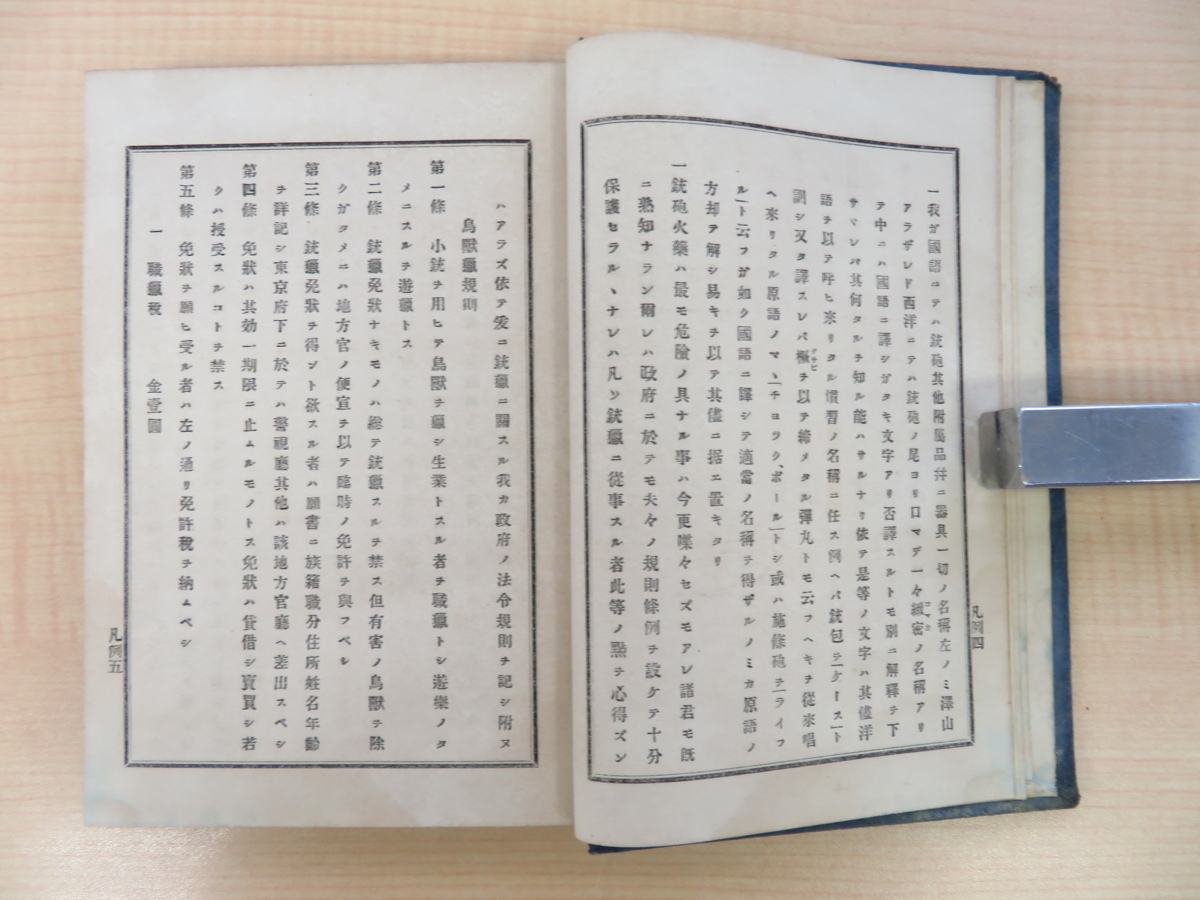 一我ガ國語ニテハ銃砲其他附屬品幷ニ器具一切ノ名稱左ノミ澤山
アラザレド西洋ニテハ銃砲ノ尾ヨリ口マデ一々緻密ノ名稱アリ
テ中ニハ國語ニ譯シガタキ文字アリ否譯スルトモ別ニ解釋ヲ下
サヾレバ其何タルヲ知ル能ハサルナリ依テ是等ノ文字ハ其儘洋
語ヲ以テ呼ヒ來リタル慣習ノ名稱ニ任ス例ヘバ銃包ヲ「ケース」ト
調シ又タ譯スレバ樞ヲ以テ締メタル彈丸トモ云フヘキヲ從來唱
ヘ來リタル原語ノマヽ「チヨツク、ボール」トシ或ハ施條砲ヲ「ライフ
ル」ト云フガ如ク國語ニ譯シテ適當ノ名稱ヲ得ザルノミカ原語ノ
方却テ解シ易キヲ以テ其儘ニ据エ置キタリ
一銃砲火藥ハ最モ危險ノ具ナル事ハ今更喋々セズモアレ諸君モ既
ニ熟知ナラン爾レハ政府ニ於テモ夫々ノ規則條例ヲ設ケテ十分
保護セラルヽナレハ凡ソ銃獵ニ從事スル者此等ノ點ヲ心得ズン
凡例四
ハアラズ依テ爰ニ銃獵ニ關スル我カ政府ノ法令規則ヲ記シ附ヌ
鳥獸獵規則
第一條 小銃ヲ用ヒテ鳥獸ヲ獵シ生業トスル者ヲ職獵トシ遊樂ノタ
メニスルヲ遊獵トス
第二條 銃獵免狀ナキモノハ總テ銃獵スルヲ禁ス但有害ノ鳥獸ヲ除
クガタメニハ地方官ノ便宜ヲ以テ臨時ノ免許ヲ與フベシ
第三條 銃獵免狀ヲ得ント欲スル者ハ願書ニ族籍職分住所姓名年齡
ヲ詳記シ東京府下ニ於テハ警視廳其他ハ該地方官廳ヘ差出スベシ
第四條 免狀ハ其効一期限ニ止ムルモノトス免狀ハ貸借シ賣買シ若
クハ授受スルコトヲ禁ス
第五條 免狀ヲ願ヒ受ル者ハ左ノ通リ免許稅ヲ納ムベシ
一 職獵稅 金壹圓
凡例五